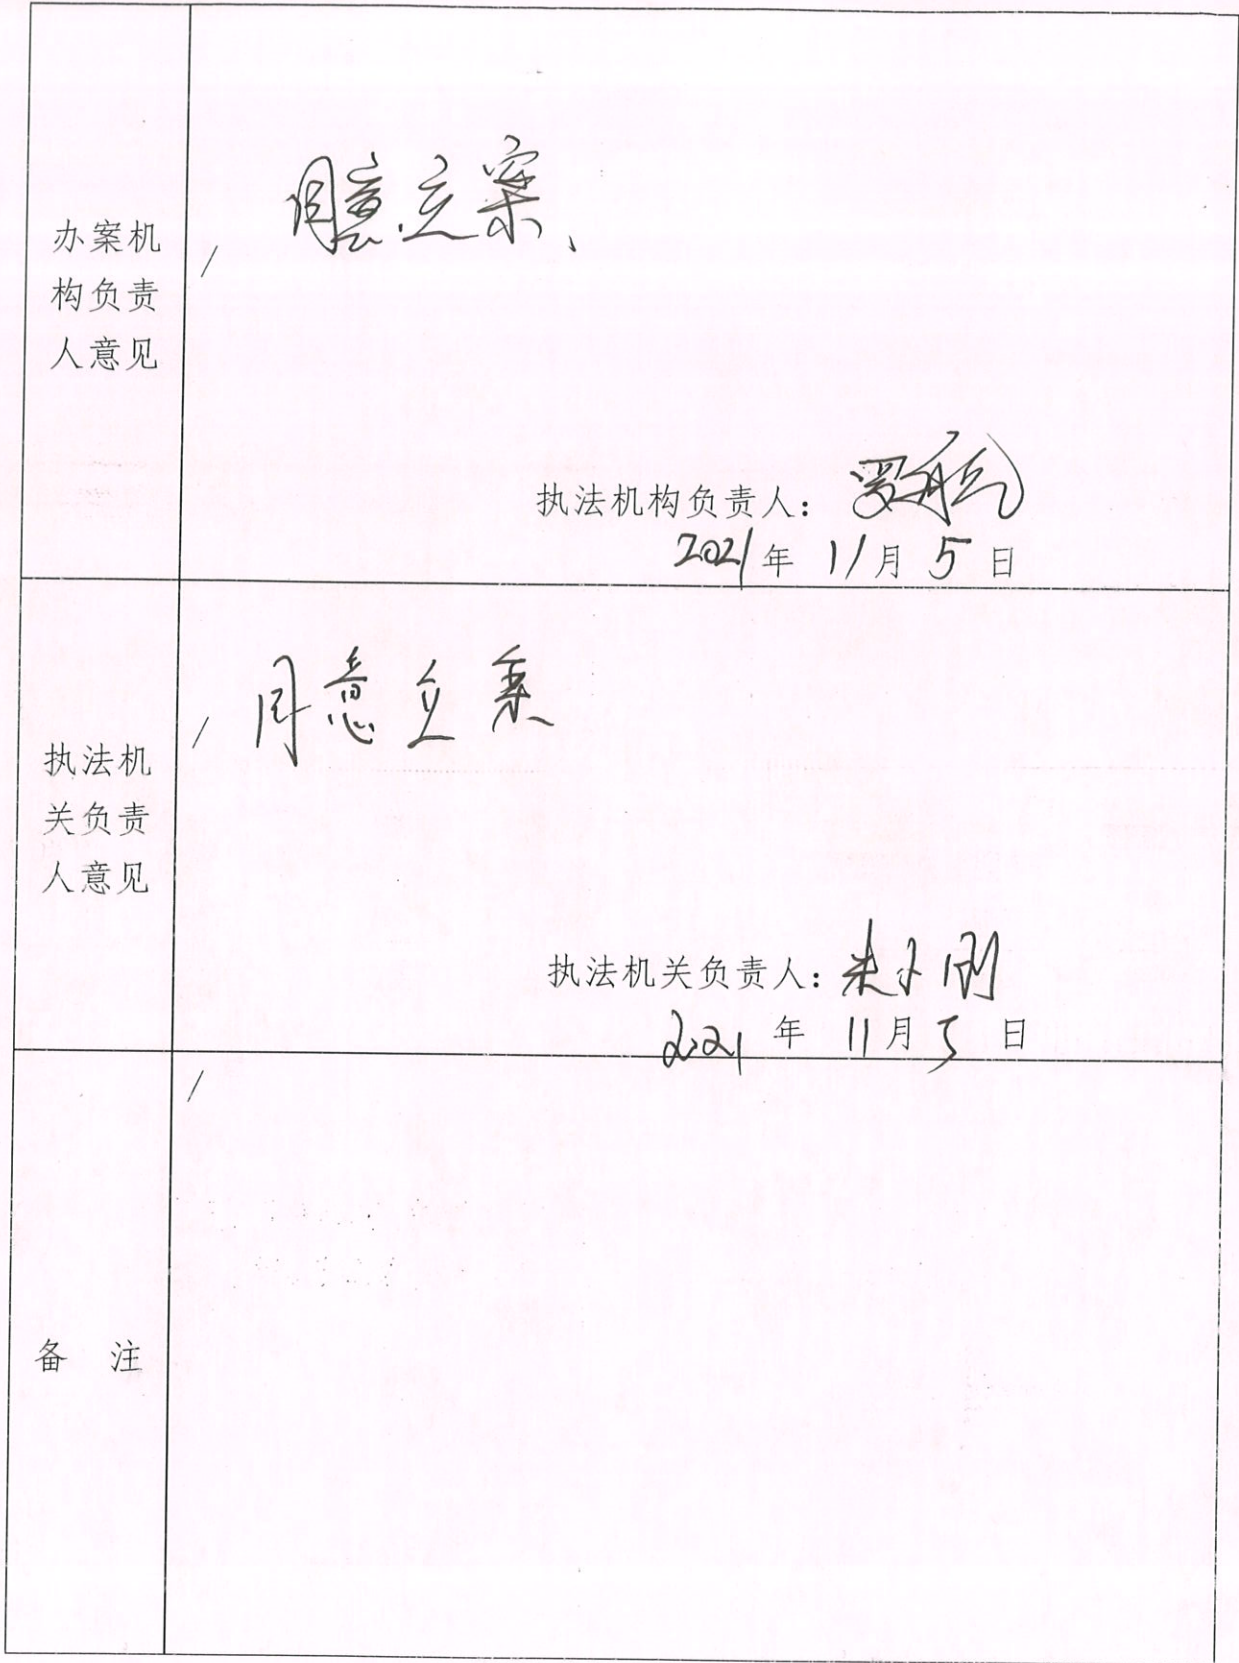 办案机
构负责
人意见
同意立案、
执法机构负责人：
2021年 11月 5日
执法机
关负责
人意见
同意立案
执法机关负责人：朱小刚
2021年 11月5日
备 注